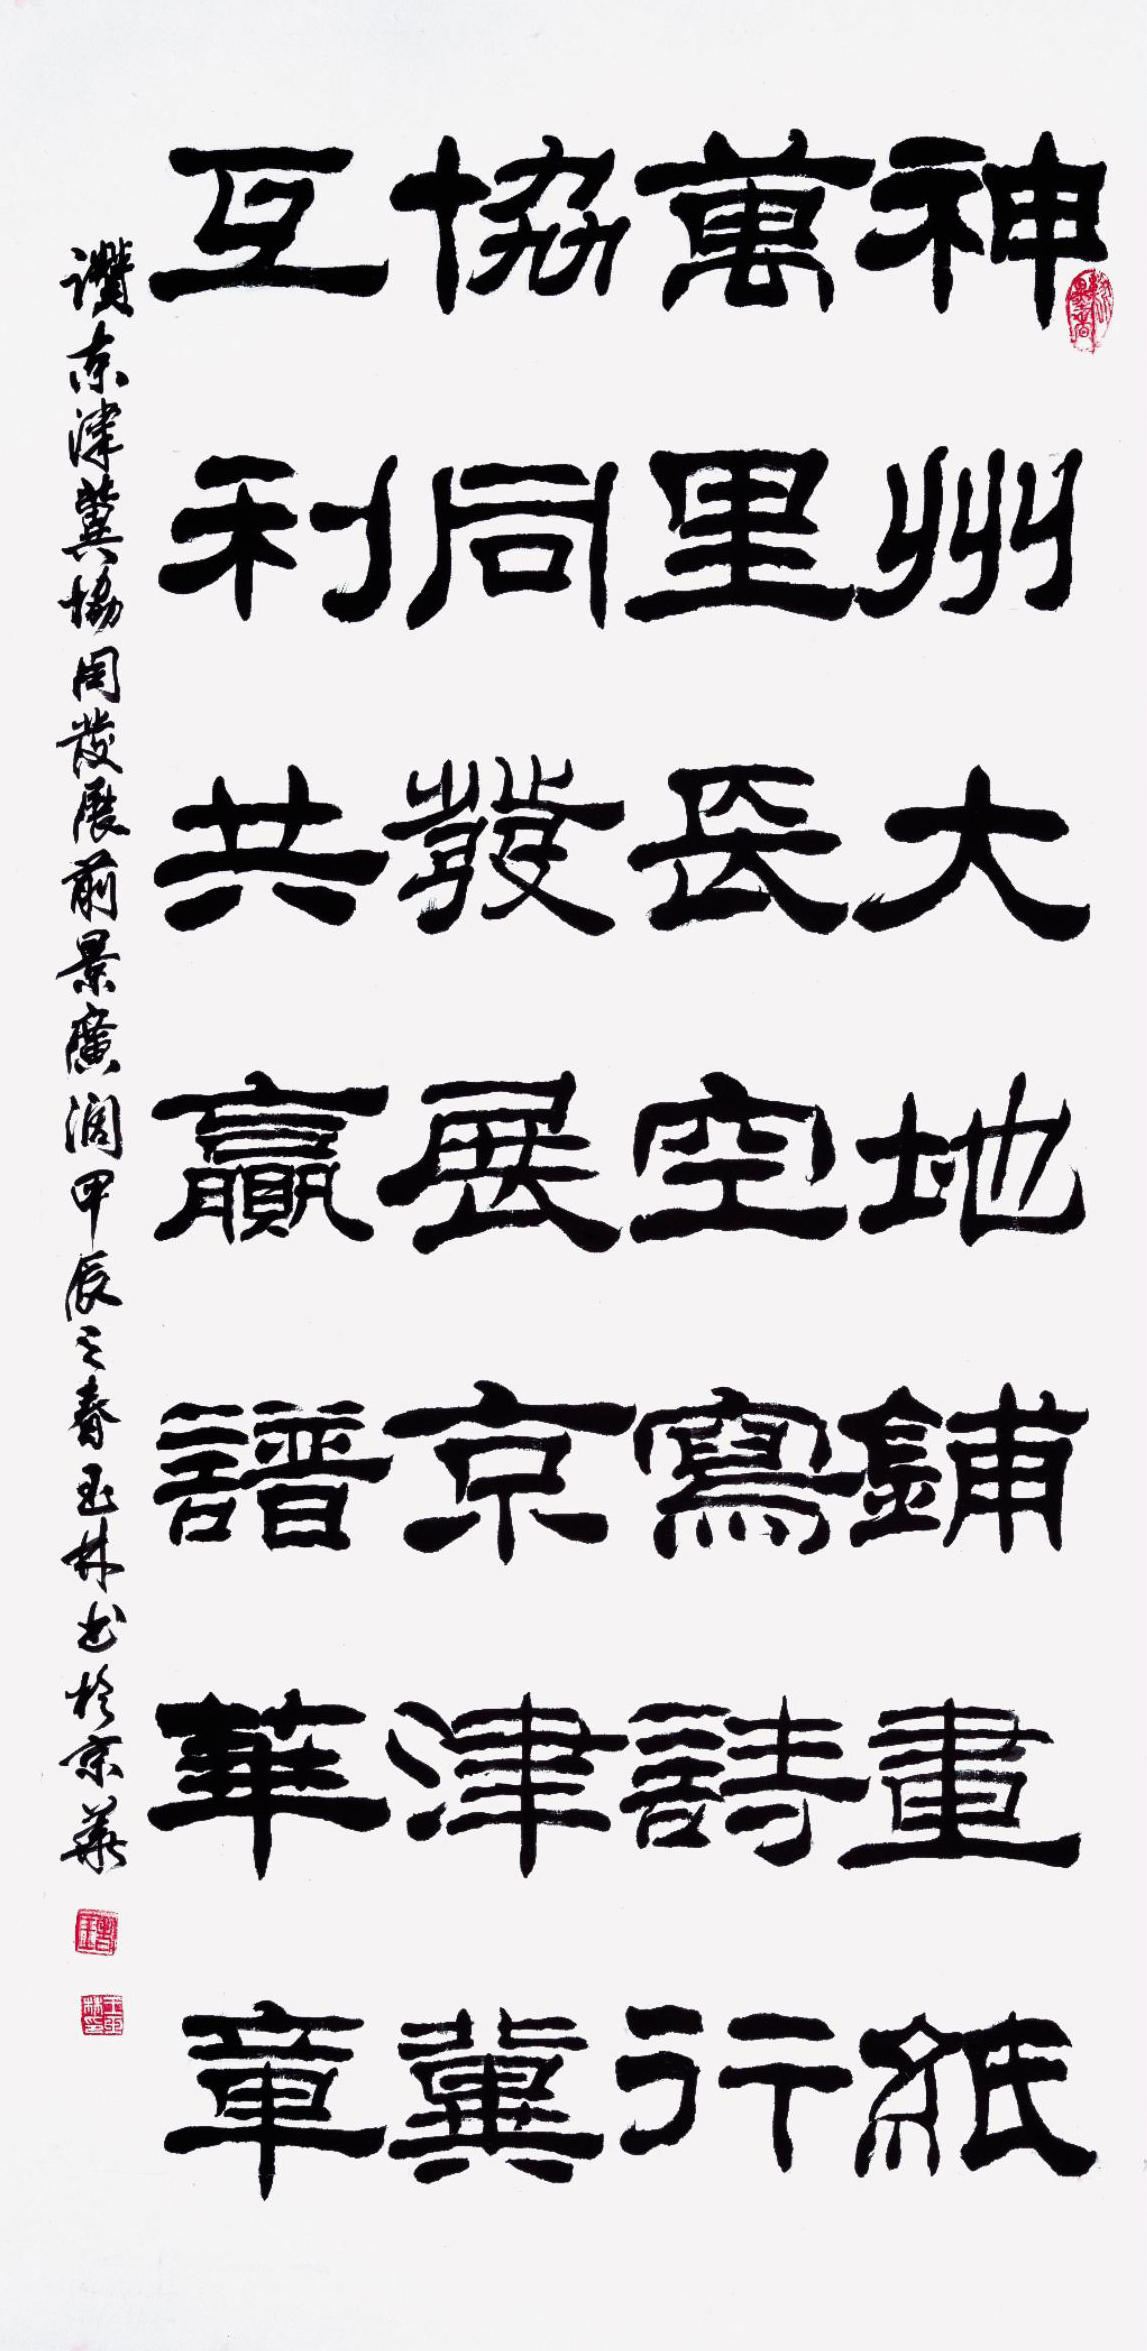 神州大地鋪畫紙
萬里長空寫詩行
協同發展京津冀
互利共贏譜華章
讚京津冀協同發展前景廣闊甲辰之春玉林书於京華